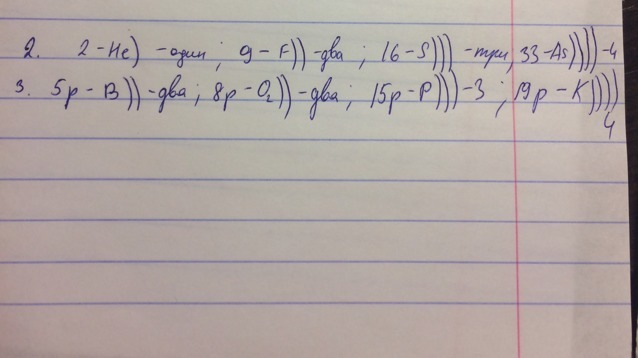 2. 2-He) -один; 9-F)) -два; 16-S))) -три, 33-As)))) -4
3. 5p-B)) -два; 8p-O₂)) -два; 15p-P))) -3; 19p-K))))
4